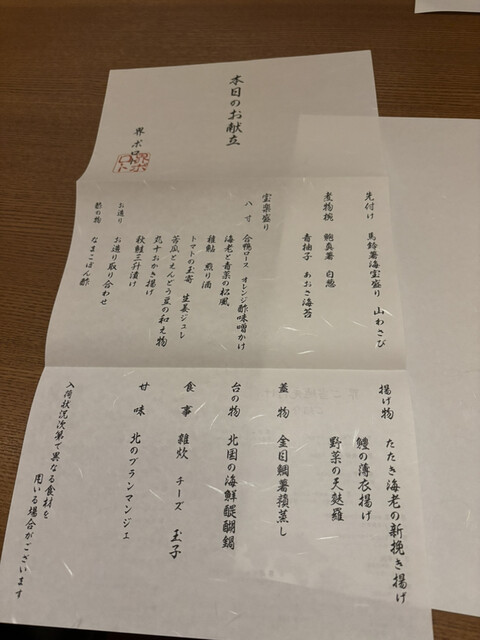 本日のお献立
界 ポロト
先付け 馬鈴薯海宝盛り 山わさび
煮物椀 鮑真薯 白葱
青柚子 あおさ海苔
宝楽盛り
八寸 合鴨ロース オレンジ酢味噌かけ
海老と青菜の松風
稚鮎 煎り酒
トマトの玉寄 生姜ジュレ
苦瓜とえんどう豆の和え物
丸十おかき揚げ
秋鮭三升漬け
お造り お造り取り合わせ
酢の物 なまこぽん酢
揚げ物 たたき海老の新挽き揚げ
鱧の薄衣揚げ
野菜の天麩羅
蓋物 金目鯛蕃蕷蒸し
台の物 北国の海鮮醍醐鍋
食事 雑炊 チーズ 玉子
甘味 北のブランマンジェ
入荷状況次第で異なる食材を
用いる場合がございます